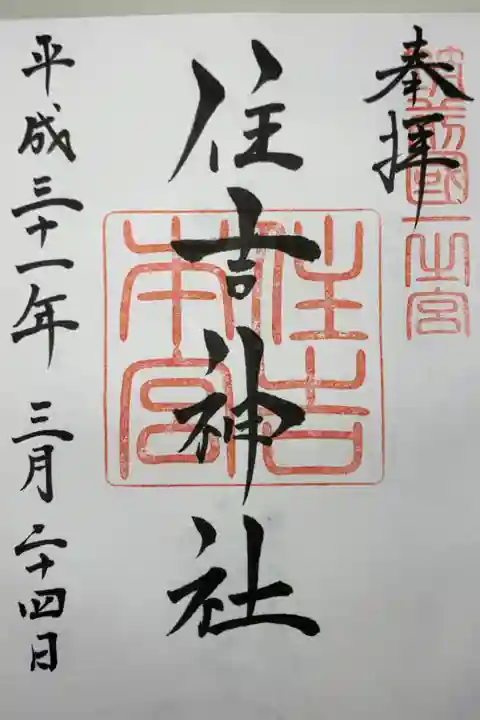 奉拝
筑前國一之宮
住吉神社
住吉本宮
平成三十一年 三月二十四日